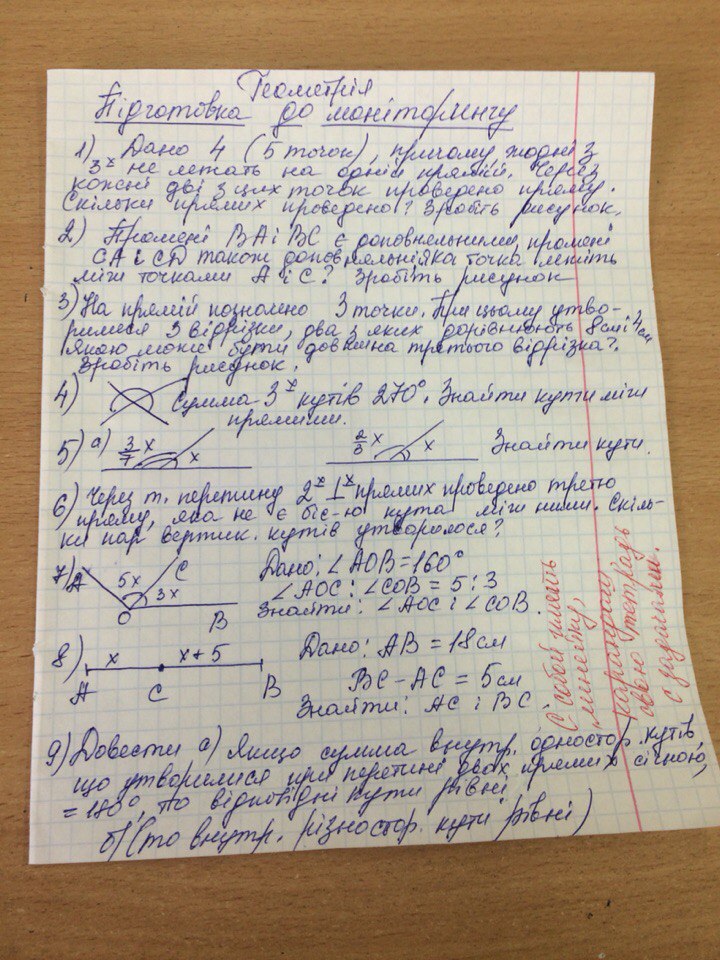 Геометрія
Підготовка до моніторингу
1) Дано 4 (5 точок), причому жодні 3
3х не лежать на одній прямій. Через
кожні дві з цих точок проведено пряму.
Скільки прямих проведено? Зробіть рисунок.
2) Промені ВА і ВС є доповняльними, промені
СА і СD також доповняльні. Яка точка лежить
між точками А і С? Зробіть рисунок
3) На прямій позначено 3 точки. При цьому утво-
рилися 3 відрізки, два з яких дорівнюють 8 см і 4 см
Якою може бути довжина третього відрізка?
Зробіть рисунок.
4) Сумма 3х кутів 270°. Знайти кути між
прямими.
5) а) 3/7 x x 2/3 x x Знайти кути.
6) Через т. перетину 2х ⊥х прямих проведено третю
пряму, яка не є біс-ю кута між ними. Скіль-
ки пар вертик. кутів утворилося?
7) А 5x С 3x О В
Дано: ∠AOB = 160°
∠AOC : ∠COB = 5 : 3
Знайти: ∠AOC і ∠COB.
8) x x + 5 А С В
Дано: АВ = 18 см
ВС – АС = 5 см
Знайти: АС і ВС.
С собой иметь
линейку,
карандаш
свою тетрадь
с задачами.
9) Довести а) Якщо сумма внутр. одностор. кутів,
що утворилися при перетині двох прямих січною,
= 180°, то відповідні кути рівні
б) (то внутр. різностор. кути рівні)